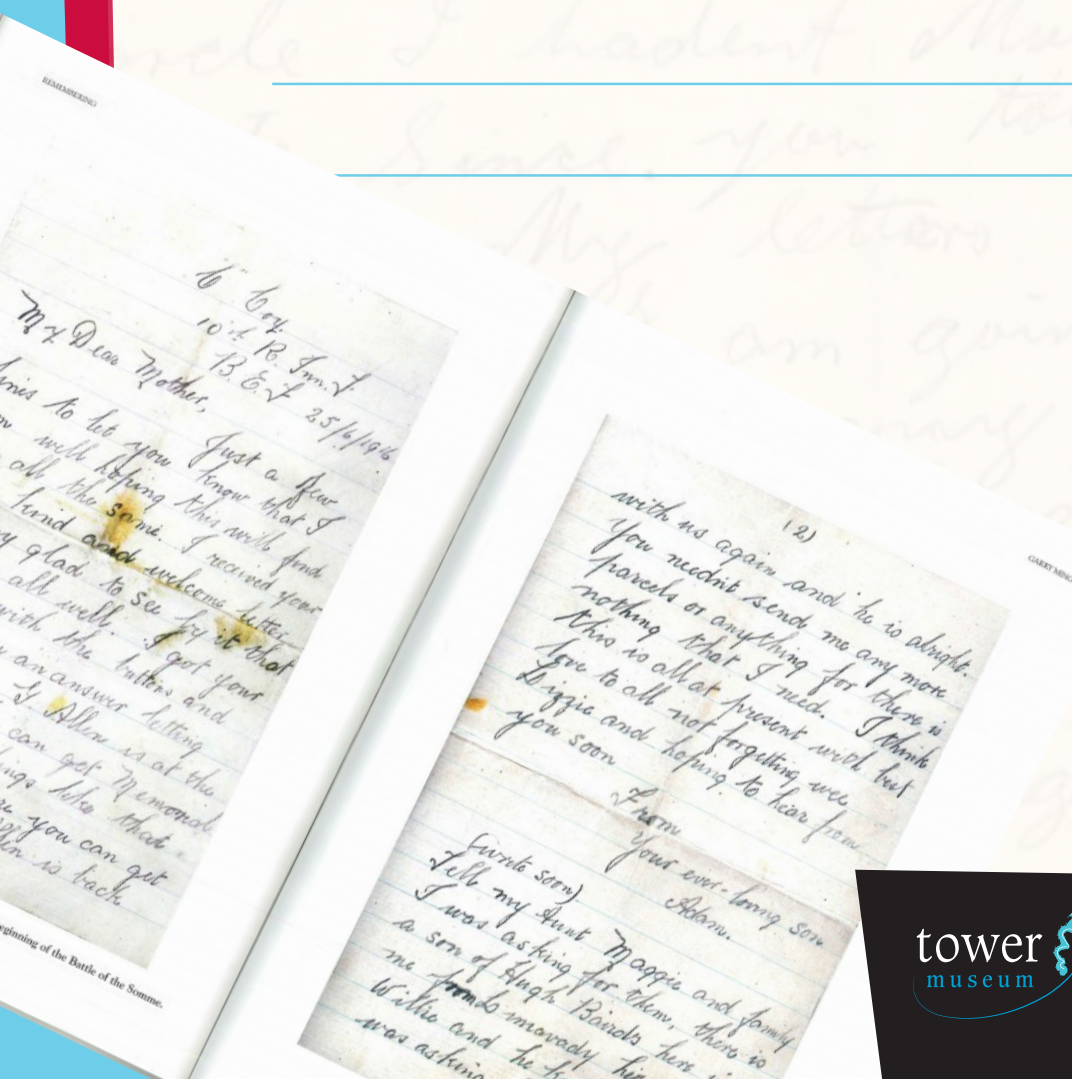 REMEMBERING
"C" Coy.
10th R. Inn. F.
B. E. F. 25/6/1916
My Dear Mother,
Just a few
to let you know that I
well hoping this will find
all the same. I received your
kind and welcome letter
glad to see by it that
all well. I got your
with the buttons and
an answer letting
Allen is at the
can get Memorial
like that
you can get
is back
eginning of the Battle of the Somme.
(2)
with us again and he is alright.
You needn't send me any more
parcels or anything for there is
nothing that I need. I think
this is all at present with best
love to all not forgetting wee
Lizzie and hoping to hear from
you soon
From
Your ever-loving son
Adam.
(write soon)
Tell my Aunt Maggie and family
I was asking for them, there is
a son of Hugh Bairds here
me from Limavady
Willie and he
was asking
GARRY MING
Since you
My letters
am goin
tower
museum